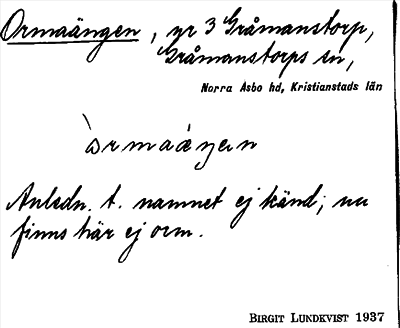 Ormaängen, yr 3 Gråmanstorp,
Gråmanstorps sn,
Norra Åsbo hd, Kristianstads län
Anledn. t. namnet ej känd; nu
finns här ej orm.
BIRGIT LUNDKVIST 1937